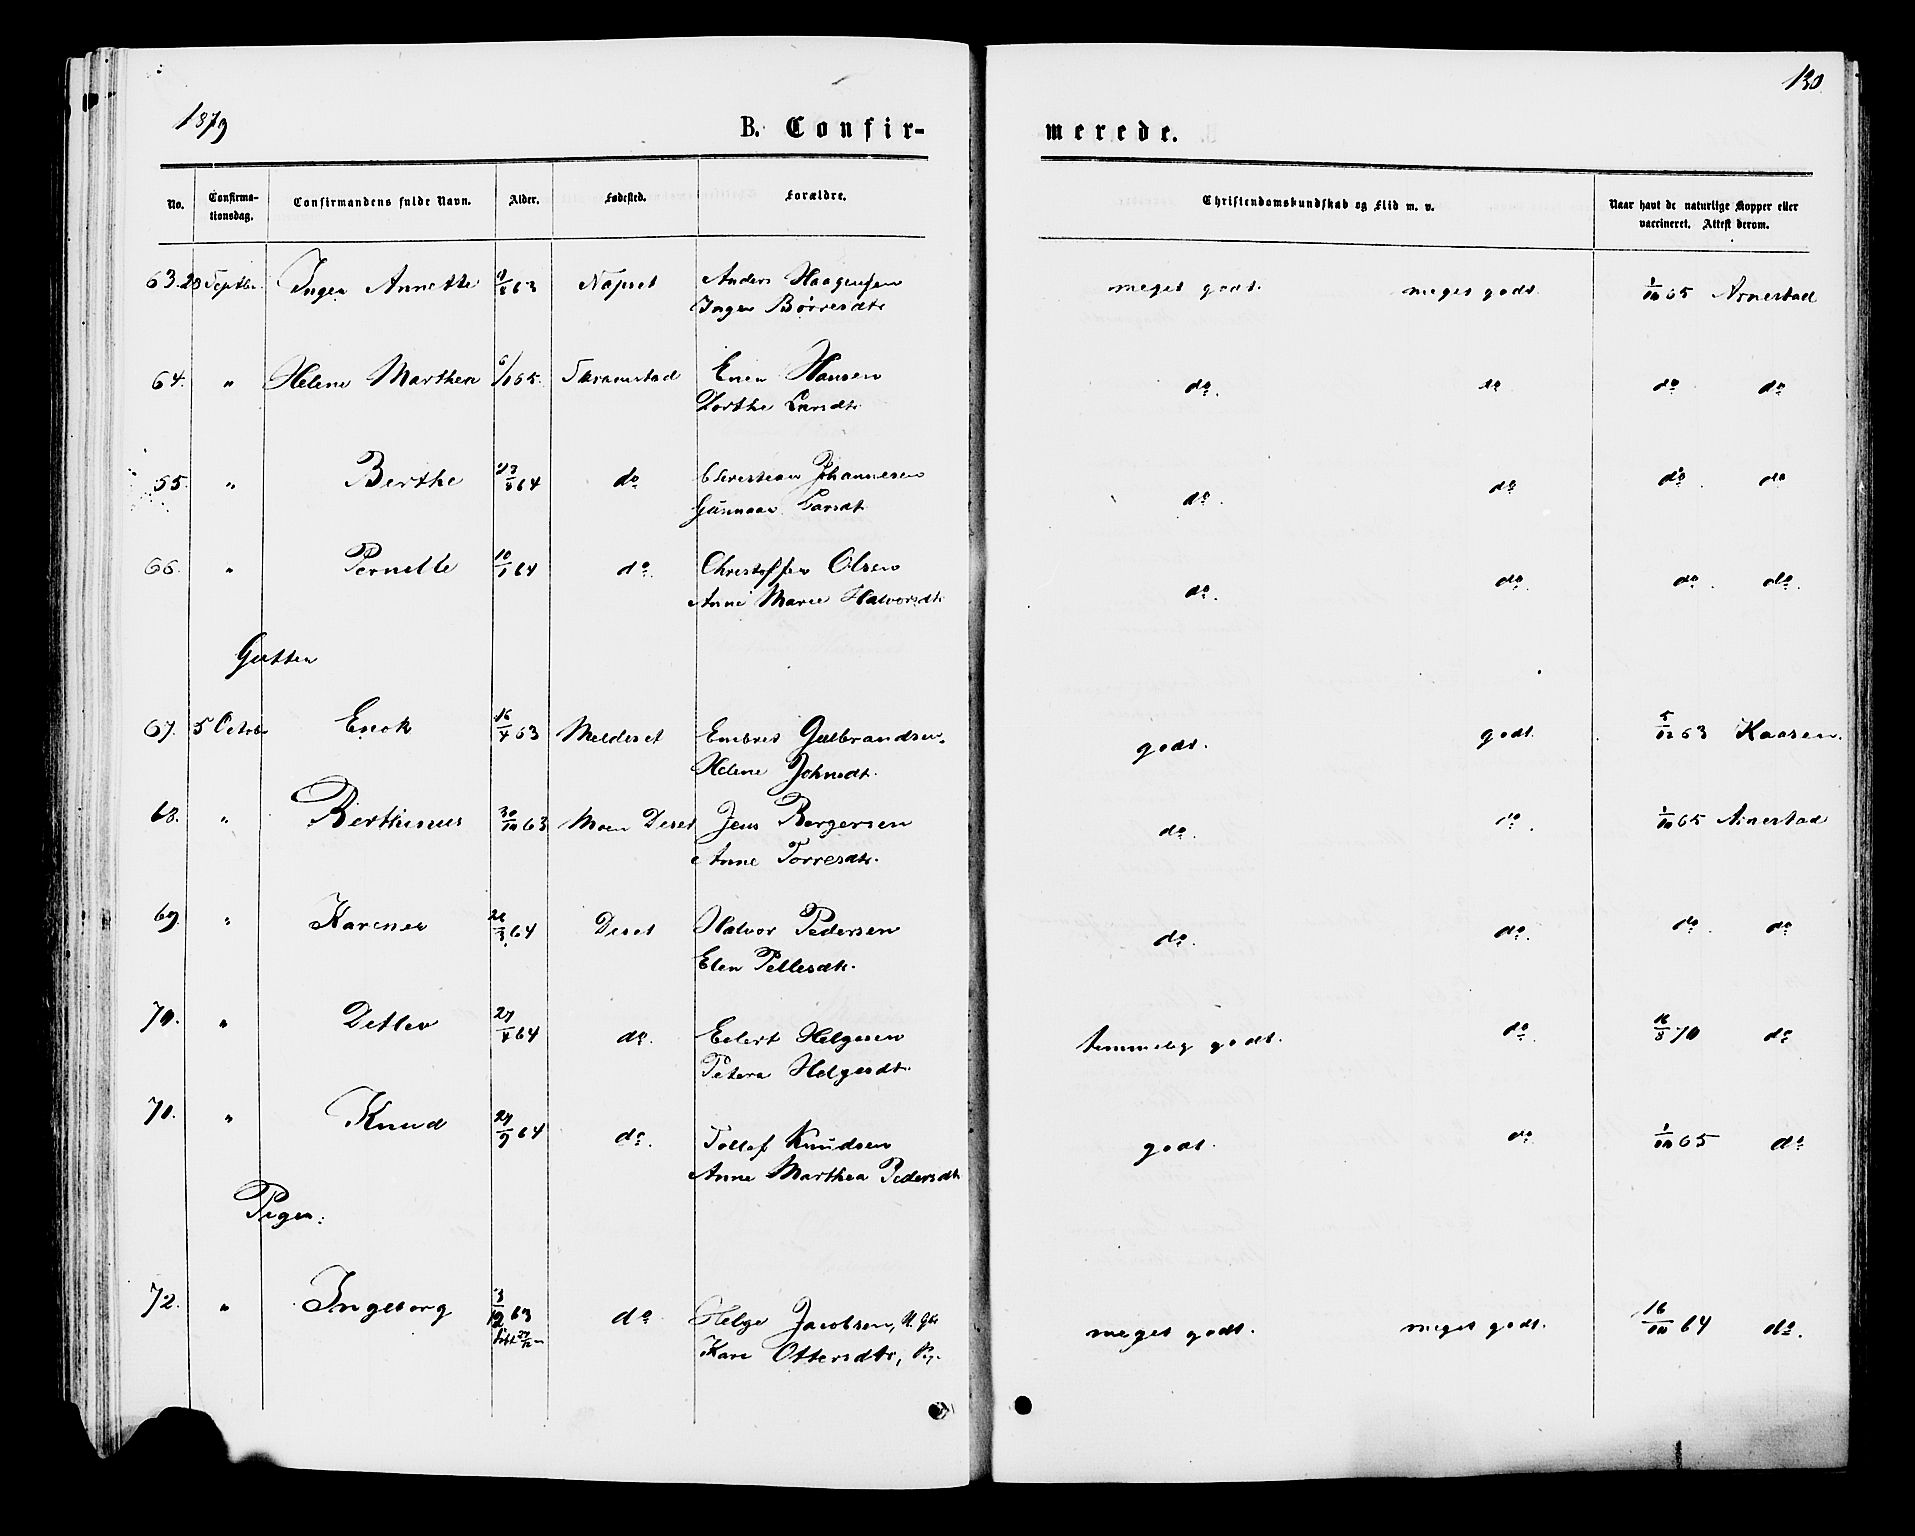 1879
B. Confir-
merede.
130
No.
Confirma-
tionsdag.
Confirmandens fulde Navn.
Alder.
Fødested.
Forældre.
Christendomskundskab og Flid m. v.
Naar havt de naturlige Kopper eller
vaccineret. Attest derom.
63. 28 Septbr. Inger Annette 63 Napset Anders Haagensen meget godt. meget godt 1/10 65 Arnestad
Inger Børresdtr
64. " Helene Marthea 6/1 65. Skramstad Even Hansen do. do do do
Dorthe Larsdtr
65. " Berthe 23/8 64 do Christian Johannesen do. do do. do
Gunnar Larsdt
66. " Pernelle 10/1 64 do. Christoffer Olsen do. do. do. do.
Anne Marie Halvorsdtr
Gutter
67. 5 Octobr Enok 16/4 63 Melderet Embret Gulbrandsen. godt. godt 5/12 63 Kaasen.
Helene Johnsdt.
68. " Berthinus 30/10 63 Moen Deset Jens Bergersen do. do. 1/10 65 Arnestad
Anne Torresdtr.
69. " Karenus 21/3 64 Deset Halvor Pedersen do. do. do. do
Elen Pellesdtr.
70. " Detlev 27/4 64 do. Eilert Helgesen temmelig godt. do. 16/8 70 do
Petera Helgesdtr
71. " Knud 27/9 64 do. Tollef Knudsen godt. do 1/10 65 do
Anne Marthea Pedersdtr
Piger:
72. " Ingeborg 3/12 63 do Helge Jacobsen, U. Gbr meget godt. meget godt. 16/10 64 do.
Kari Ottersdtr, Pig.